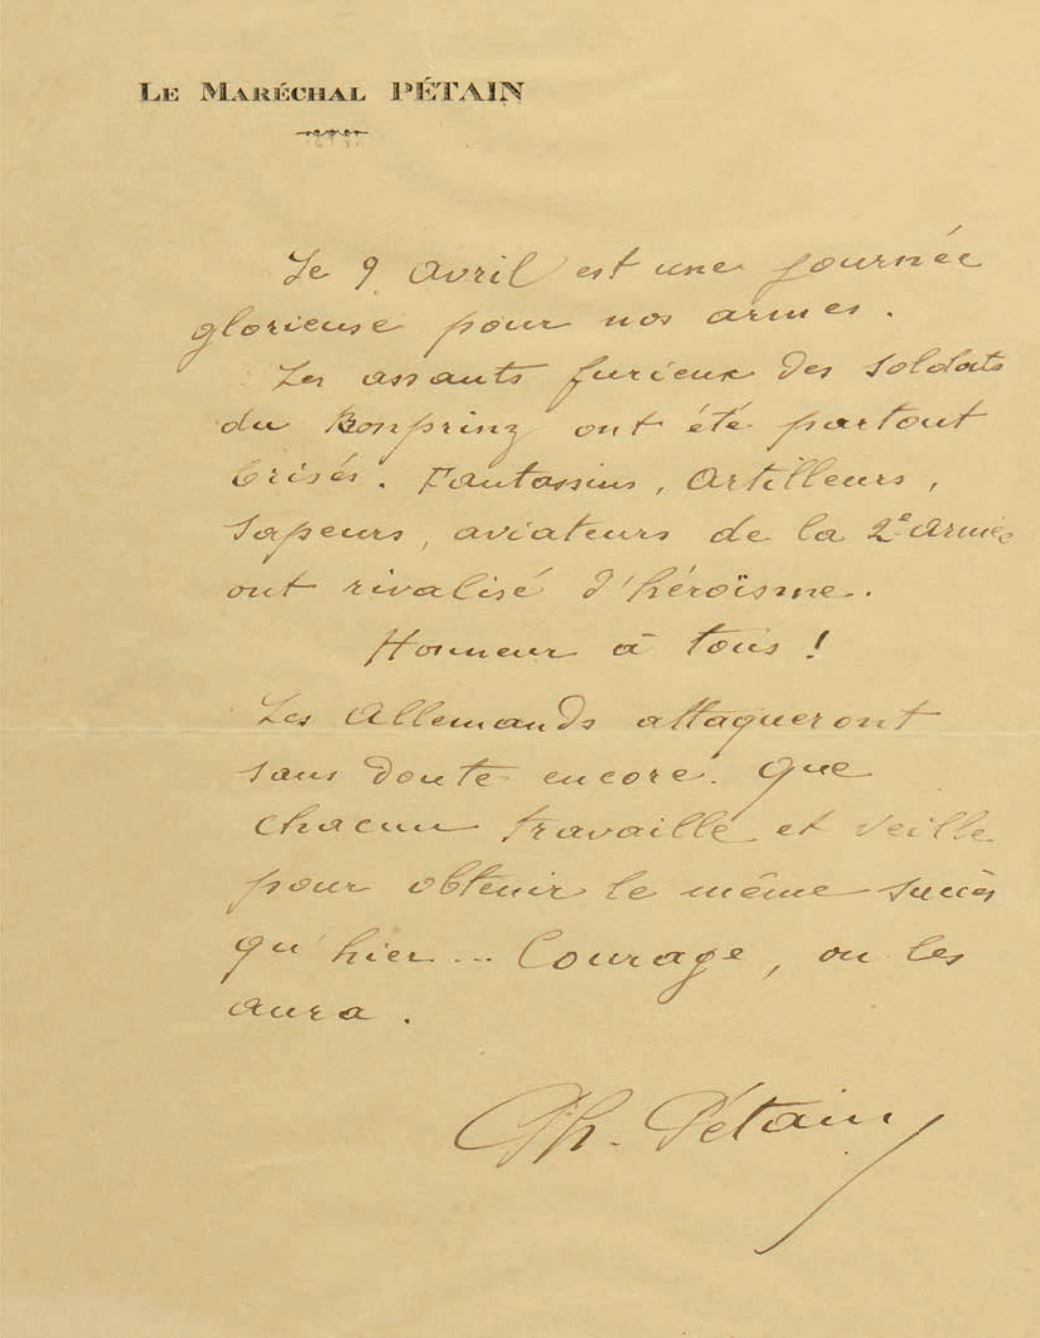 LE MARÉCHAL PÉTAIN
Le 9 Avril est une journée
glorieuse pour nos armes.
Les assauts furieux des soldats
du Kronprinz ont été partout
brisés. Fantassins, Artilleurs,
Sapeurs, aviateurs de la 2e Armée
ont rivalisé d'héroïsme.
Honneur à tous !
Les Allemands attaqueront
sans doute encore. Que
chacun travaille et veille
pour obtenir le même succès
qu'hier... Courage, on les
aura.
Ph. Pétain